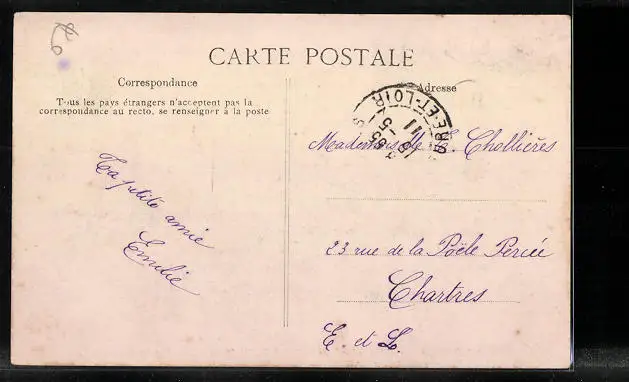 CARTE POSTALE
Correspondance
Tous les pays étrangers n'acceptent pas la
correspondance au recto, se renseigner à la poste
Ta petite amie
Emilie
Adresse
EURE-ET-LOIR
Mademoiselle E. Chollières
23 rue de la Poële Percée
Chartres
E. et L.